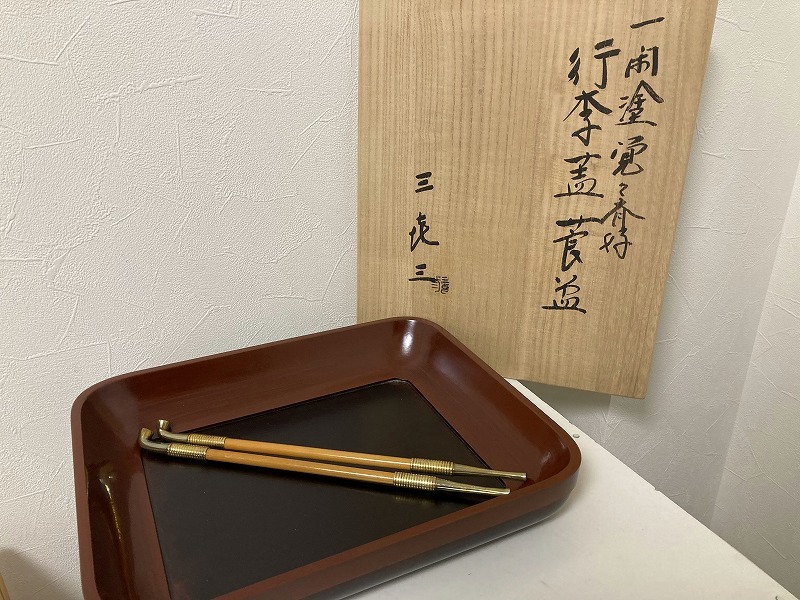 一閑塗覚々斎好
行李蓋莨盆
三㐂三